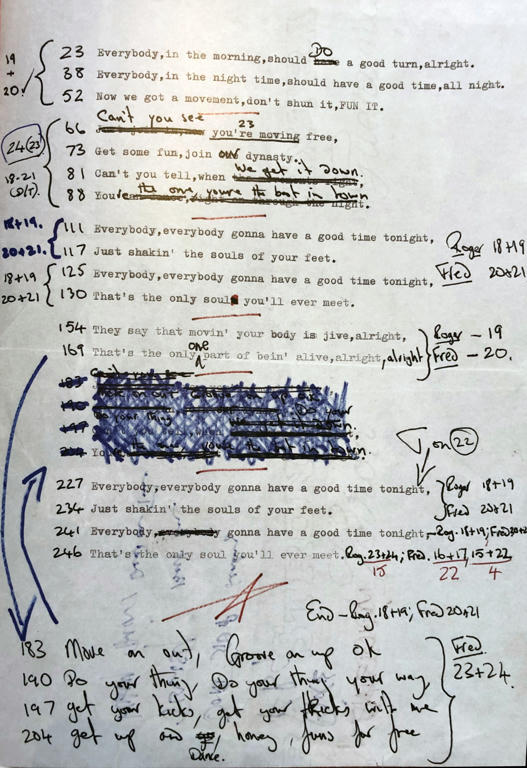 19
+
20
23 Everybody,in the morning,should DO a good turn,alright.
38 Everybody,in the night time,should have a good time,all night.
52 Now we got a movement,don't shun it,FUN IT.
Can't you see 23
66 you're moving free,
24(23)
73 Get some fun,join our dynasty.
18-21
81 Can't you tell,when we get it down.
88 You're the one, you're the best in town
18+19. 111 Everybody,everybody gonna have a good time tonight, Roger 18+19
20+21. 117 Just shakin' the souls of your feet. Fred 20+21
18+19 125 Everybody,everybody gonna have a good time tonight,
20+21 130 That's the only soul you'll ever meet.
154 They say that movin' your body is jive,alright, Roger - 19
one
169 That's the only part of bein' alive,alright,alright Fred - 20.
183
190
197
204 You're the one you're the best in town.
on 22
227 Everybody,everybody gonna have a good time tonight, Roger 18+19
234 Just shakin' the souls of your feet. Fred 20+21
241 Everybody, gonna have a good time tonight, - Rog. 18+19; Fred 20+21
246 That's the only soul you'll ever meet. Rog. 23+24; Fred. 16+17, 15+22
15 22 4
End - Rog. 18+19; Fred 20+21
183 Move on out, Groove on up OK Fred
190 Do your thing, Do your thing your way 23+24.
197 get your kicks, get your tricks with me
204 get up and , honey, funs for free
Dance.